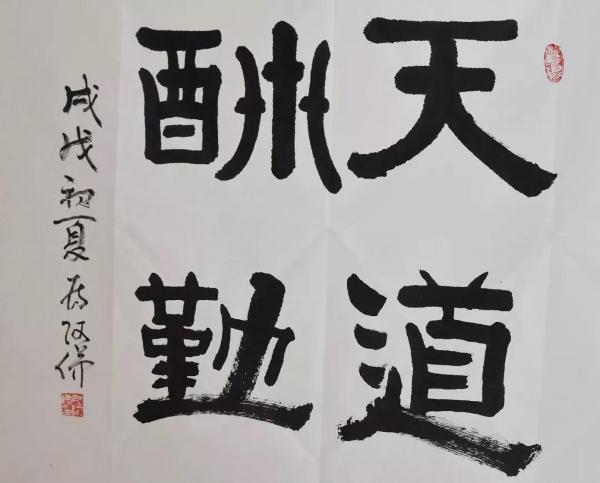 天道
酬勤
戊戌初夏